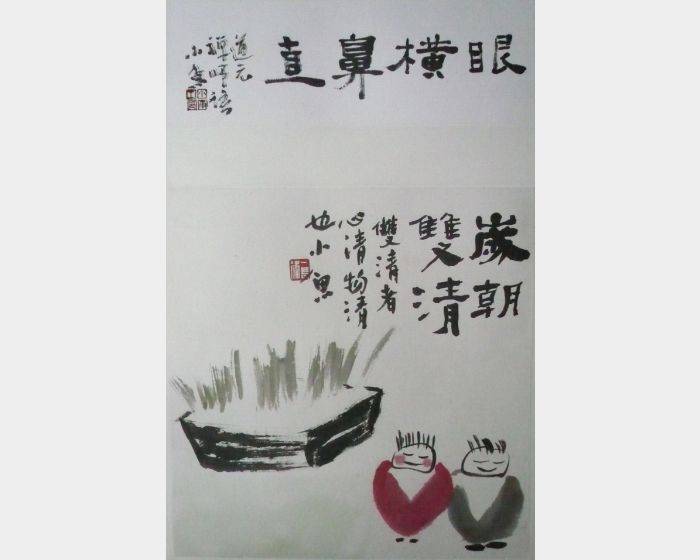 眼橫鼻直
道元
禪師語
小魚
歲朝
雙清
雙清者
心清物清
也小魚